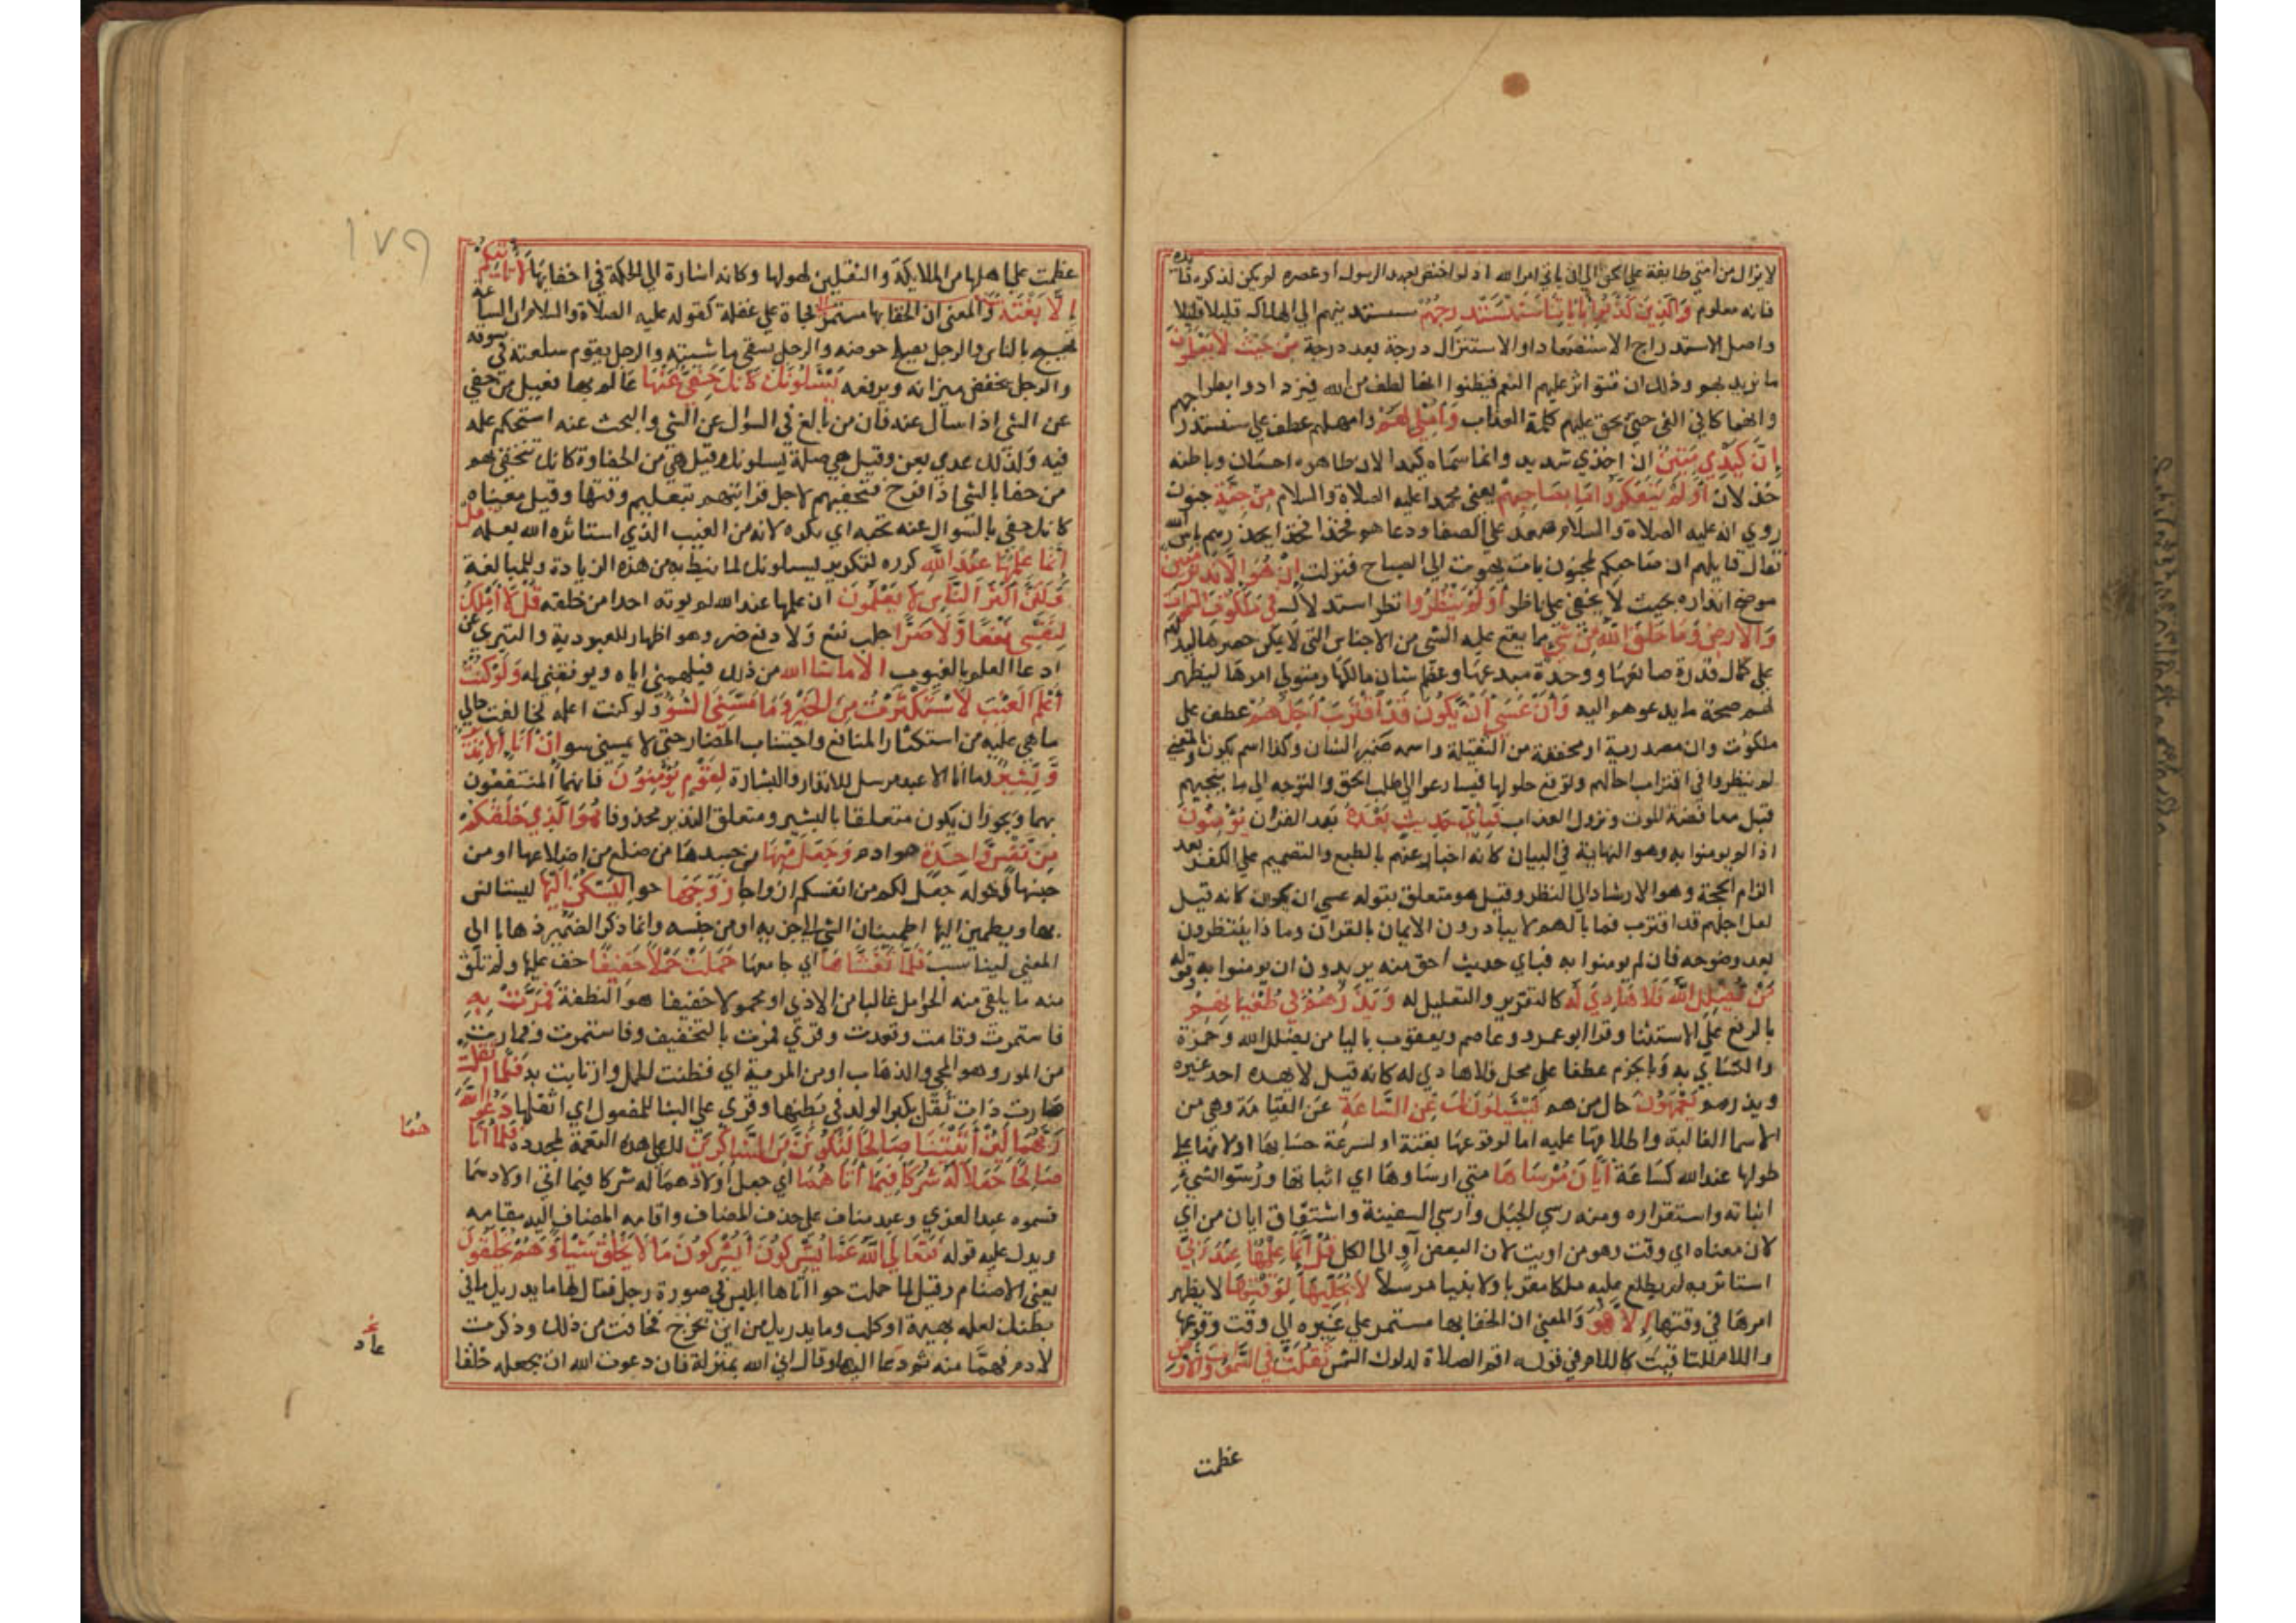 لا يزال من امتي طايفة علي الحق الي ان ياتي امر الله اذ لو اختص بعهد الرسول او عصره لم يكن لذكره فايدة
فانه معلوم وَالَّذِينَ كَذَّبُوا بِآيَاتِنَا سَنَسْتَدْرِجُهُمْ سنستدنيهم الي الهلاك قليلا قليلا
واصل الاستدراج الاستصعاد او الاستنزال درجة بعد درجة مِنْ حَيْثُ لَا يَعْلَمُونَ
ما نريد بهم وذلك ان تتواتر عليهم النعم فيظنوا انها لطف من الله فيزدادوا بطرا
وانهماكا في الغي حتي يحق عليهم كلمة العذاب وَأُمْلِي لَهُمْ وامهلهم عطف علي سنستدرجهم
إِنَّ كَيْدِي مَتِينٌ ان اخذي شديد وانما سماه كيدا لان ظاهره احسان وباطنه
خذلان أَوَلَمْ يَتَفَكَّرُوا مَا بِصَاحِبِهِمْ يعني محمدا عليه الصلاة والسلام مِنْ جِنَّةٍ جنون
روي انه عليه الصلاة والسلام صعد علي الصفا ودعاهم فخذا فخذا يحذرهم باس الله
فقال قايلهم ان صاحبكم لمجنون بات يهوت الي الصباح فنزلت إِنْ هُوَ إِلَّا نَذِيرٌ مُبِينٌ
موضح انذاره بحيث لا يخفي علي ناظر أَوَلَمْ يَنْظُرُوا نظر استدلال فِي مَلَكُوتِ السَّمَوَاتِ
وَالْأَرْضِ وَمَا خَلَقَ اللَّهُ مِنْ شَيْءٍ مما يقع عليه الشي من الاجناس التي لا يمكن حصرها ليدلهم
علي كمال قدرة صانعها ووحدة مبدعها وعظم شان مالكها ومتولي امرها ليظهر
لهم صحة ما يدعوهم اليه وَأَنْ عَسَى أَنْ يَكُونَ قَدِ اقْتَرَبَ أَجَلُهُمْ عطف علي
ملكوت وان مصدرية او مخففة من الثقيلة واسمه ضمير الشان وكذا اسم يكون والمعني
لم ينظروا في اقتراب اجالهم وتوقع حلولها فيسارعوا الي طلب الحق والتوجه الي ما ينجيهم
قبل مغافصة الموت ونزول العذاب فَبِأَيِّ حَدِيثٍ بَعْدَهُ بعد القران يُؤْمِنُونَ
اذا لم يومنوا به وهو النهاية في البيان كانه اخبار عنهم بالطبع والتصميم علي الكفر بعد
الزام الحجة وهو الارشاد الي النظر وقيل هو متعلق بقوله عسي ان يكون كانه قيل
لعل اجلهم قد اقترب فما بالهم لا يبادرون الايمان بالقران وماذا ينتظرون
بعد وضوحه فان لم يومنوا به فباي حديث احق منه يريدون ان يومنوا به وقوله
مَنْ يُضْلِلِ اللَّهُ فَلَا هَادِيَ لَهُ كالتقرير والتعليل له وَيَذَرُهُمْ فِي طُغْيَانِهِمْ
بالرفع علي الاستئنا وقرا ابو عمرو وعاصم ويعقوب باليا من يضلل الله وحمزة
والكساي به وبالجزم عطفا علي محل فلا هادي له كانه قيل لا يهده احد غيره
ويذرهم يَعْمَهُونَ حال من هم يَسْئَلُونَكَ عَنِ السَّاعَةِ عن القيامة وهي من
الاسما الغالبة واطلاقها عليه اما لوقوعها بغتة او لسرعة حسابها او لانها علي
طولها عند الله كساعة أَيَّانَ مُرْسَاهَا متي ارساوها اي اثباتها ورسو الشي
اثباته واستقراره ومنه رسي الجبل وارسي السفينة واشتقاق ايان من اي
لان معناه اي وقت وهو من اويت لان البعض آو الي الكل قُلْ إِنَّمَا عِلْمُهَا عِنْدَ رَبِّي
استاثر به لم يطلع عليه ملكا مقربا ولا نبيا مرسلا لَا يُجَلِّيهَا لِوَقْتِهَا لا يظهر
امرها في وقتها إِلَّا هُوَ والمعني ان الخفا بها مستمر علي غيره الي وقت وقوعها
واللام للتاقيت كاللام في قوله اقم الصلاة لدلوك الشمس ثَقُلَتْ فِي السَّمَوَاتِ وَالْأَرْضِ
عظمت
١٧٩
عظمت علي اهلها من الملايكة والثقلين لهولها وكانه اشارة الي الحكمة في اخفايها لَا تَأْتِيكُمْ
إِلَّا بَغْتَةً فجاة علي غفلة كقوله عليه الصلاة والسلام ان الساعة
تهيج بالناس والرجل يصلح حوضه والرجل يسقي ماشيته والرجل يقوم سلعته في سوقه
والرجل يخفض ميزانه ويرفعه يَسْئَلُونَكَ كَأَنَّكَ حَفِيٌّ عَنْهَا عالم بها فعيل من حفي
عن الشي اذا سال عنه فان من بالغ في السوال عن الشي والبحث عنه استحكم علمه
فيه ولذلك عدي بعن وقيل هي صلة يسلونك وقيل هي من الحفاوة كانك تتحفي بهم
من حفا بالشي اذا فرح فتحفيهم لاجل قرابتهم بتعليم وقتها وقيل معناه
كانك حفي بالسوال عنه تحبه اي تكره لانه من الغيب الذي استاثره الله بعلمه قُلْ
إِنَّمَا عِلْمُهَا عِنْدَ اللَّهِ كرره لتكرير يسلونك لما نيط به من هذه الزيادة وللمبالغة
وَلَكِنَّ أَكْثَرَ النَّاسِ لَا يَعْلَمُونَ ان علمها عند الله لم يوته احدا من خلقه قُلْ لَا أَمْلِكُ
لِنَفْسِي نَفْعًا وَلَا ضَرًّا جلب نفع ولا دفع ضر وهو اظهار للعبودية والتبري عن
ادعا العلم بالغيوب الا ما شا الله من ذلك فيلهمني اياه ويوفقني له وَلَوْ كُنْتُ
أَعْلَمُ الْغَيْبَ لَاسْتَكْثَرْتُ مِنَ الْخَيْرِ وَمَا مَسَّنِيَ السُّوءُ ولو كنت اعلمه لخالفت حالي
ما هي عليه من استكثار المنافع واجتناب المضار حتي لا يمسني سو إِنْ أَنَا إِلَّا نَذِيرٌ
وَبَشِيرٌ ما انا الا عبد مرسل للانذار والبشارة لِقَوْمٍ يُؤْمِنُونَ فانهم المنتفعون
بهما ويجوز ان يكون متعلقا بالبشير ومتعلق النذير محذوفا هُوَ الَّذِي خَلَقَكُمْ
مِنْ نَفْسٍ وَاحِدَةٍ هو ادم وَجَعَلَ مِنْهَا من جسدها من ضلع من اضلاعها او من
جنسها كقوله جعل لكم من انفسكم ازواجا زَوْجَهَا حوا لِيَسْكُنَ إِلَيْهَا ليستانس
بها ويطمين اليها اطمينان الشي الي جزيه او من جنسه وانما ذكر الضمير ذهابا الي
المعني ليناسب فَلَمَّا تَغَشَّاهَا اي جامعها حَمَلَتْ حَمْلًا خَفِيفًا خف عليها ولم تلق
منه ما يلقي منه الحوامل غالبا من الاذي او محمولا خفيفا هو النطفة فَمَرَّتْ بِهِ
فاستمرت وقامت وقعدت وقري فمرت بالتخفيف وفاستمرت وفمارت
من المور وهو المجي والذهاب او من المرية اي فظنت الحمل وارتابت به فَلَمَّا أَثْقَلَتْ
صارت ذات ثقل بكبر الولد في بطنها وقري علي البنا للمفعول اي اثقلها دَعَوَا اللَّهَ
رَبَّهُمَا لَئِنْ آتَيْتَنَا صَالِحًا لَنَكُونَنَّ مِنَ الشَّاكِرِينَ لك علي هذه النعمة المجددة فَلَمَّا آتَا
هُمَا
صَالِحًا جَعَلَا لَهُ شُرَكَاءَ فِيمَا آتَاهُمَا اي جعل اولادهما له شركا فيما اتي اولادهما
فسموه عبد العزي وعبد مناف علي حذف المضاف واقامه المضاف اليه مقامه
ويدل عليه قوله فَتَعَالَى اللَّهُ عَمَّا يُشْرِكُونَ أَيُشْرِكُونَ مَا لَا يَخْلُقُ شَيْئًا وَهُمْ يُخْلَقُونَ
يعني الاصنام وقيل لما حملت حوا اتاها ابليس في صورة رجل فقال لها ما يدريك ما في
بطنك لعله بهيمة او كلب وما يدريك من اين يخرج فخافت من ذلك وذكرت
لادم فهما منه ثم عاد اليها وقال اني من الله بمنزلة فان دعوت الله ان يجعله خلقا
عاد